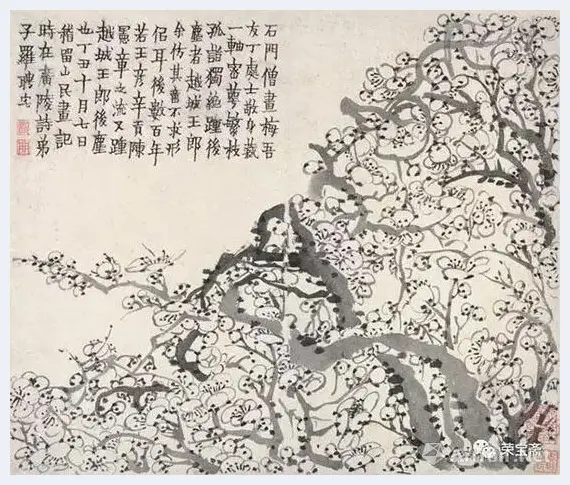 石門僧畫梅吾
友丁處士敬身藏
一軸密萼繁枝
孤詣獨絕踵後
塵者越城王郎
余仿其意不求形
佀耳後數百年
若王彥辛貢陳
憲章之流又踵
越城王郎後塵
也丁丑十月七日
稽留山民畫記
時在廣陵詩弟
子羅聘
荣宝斋